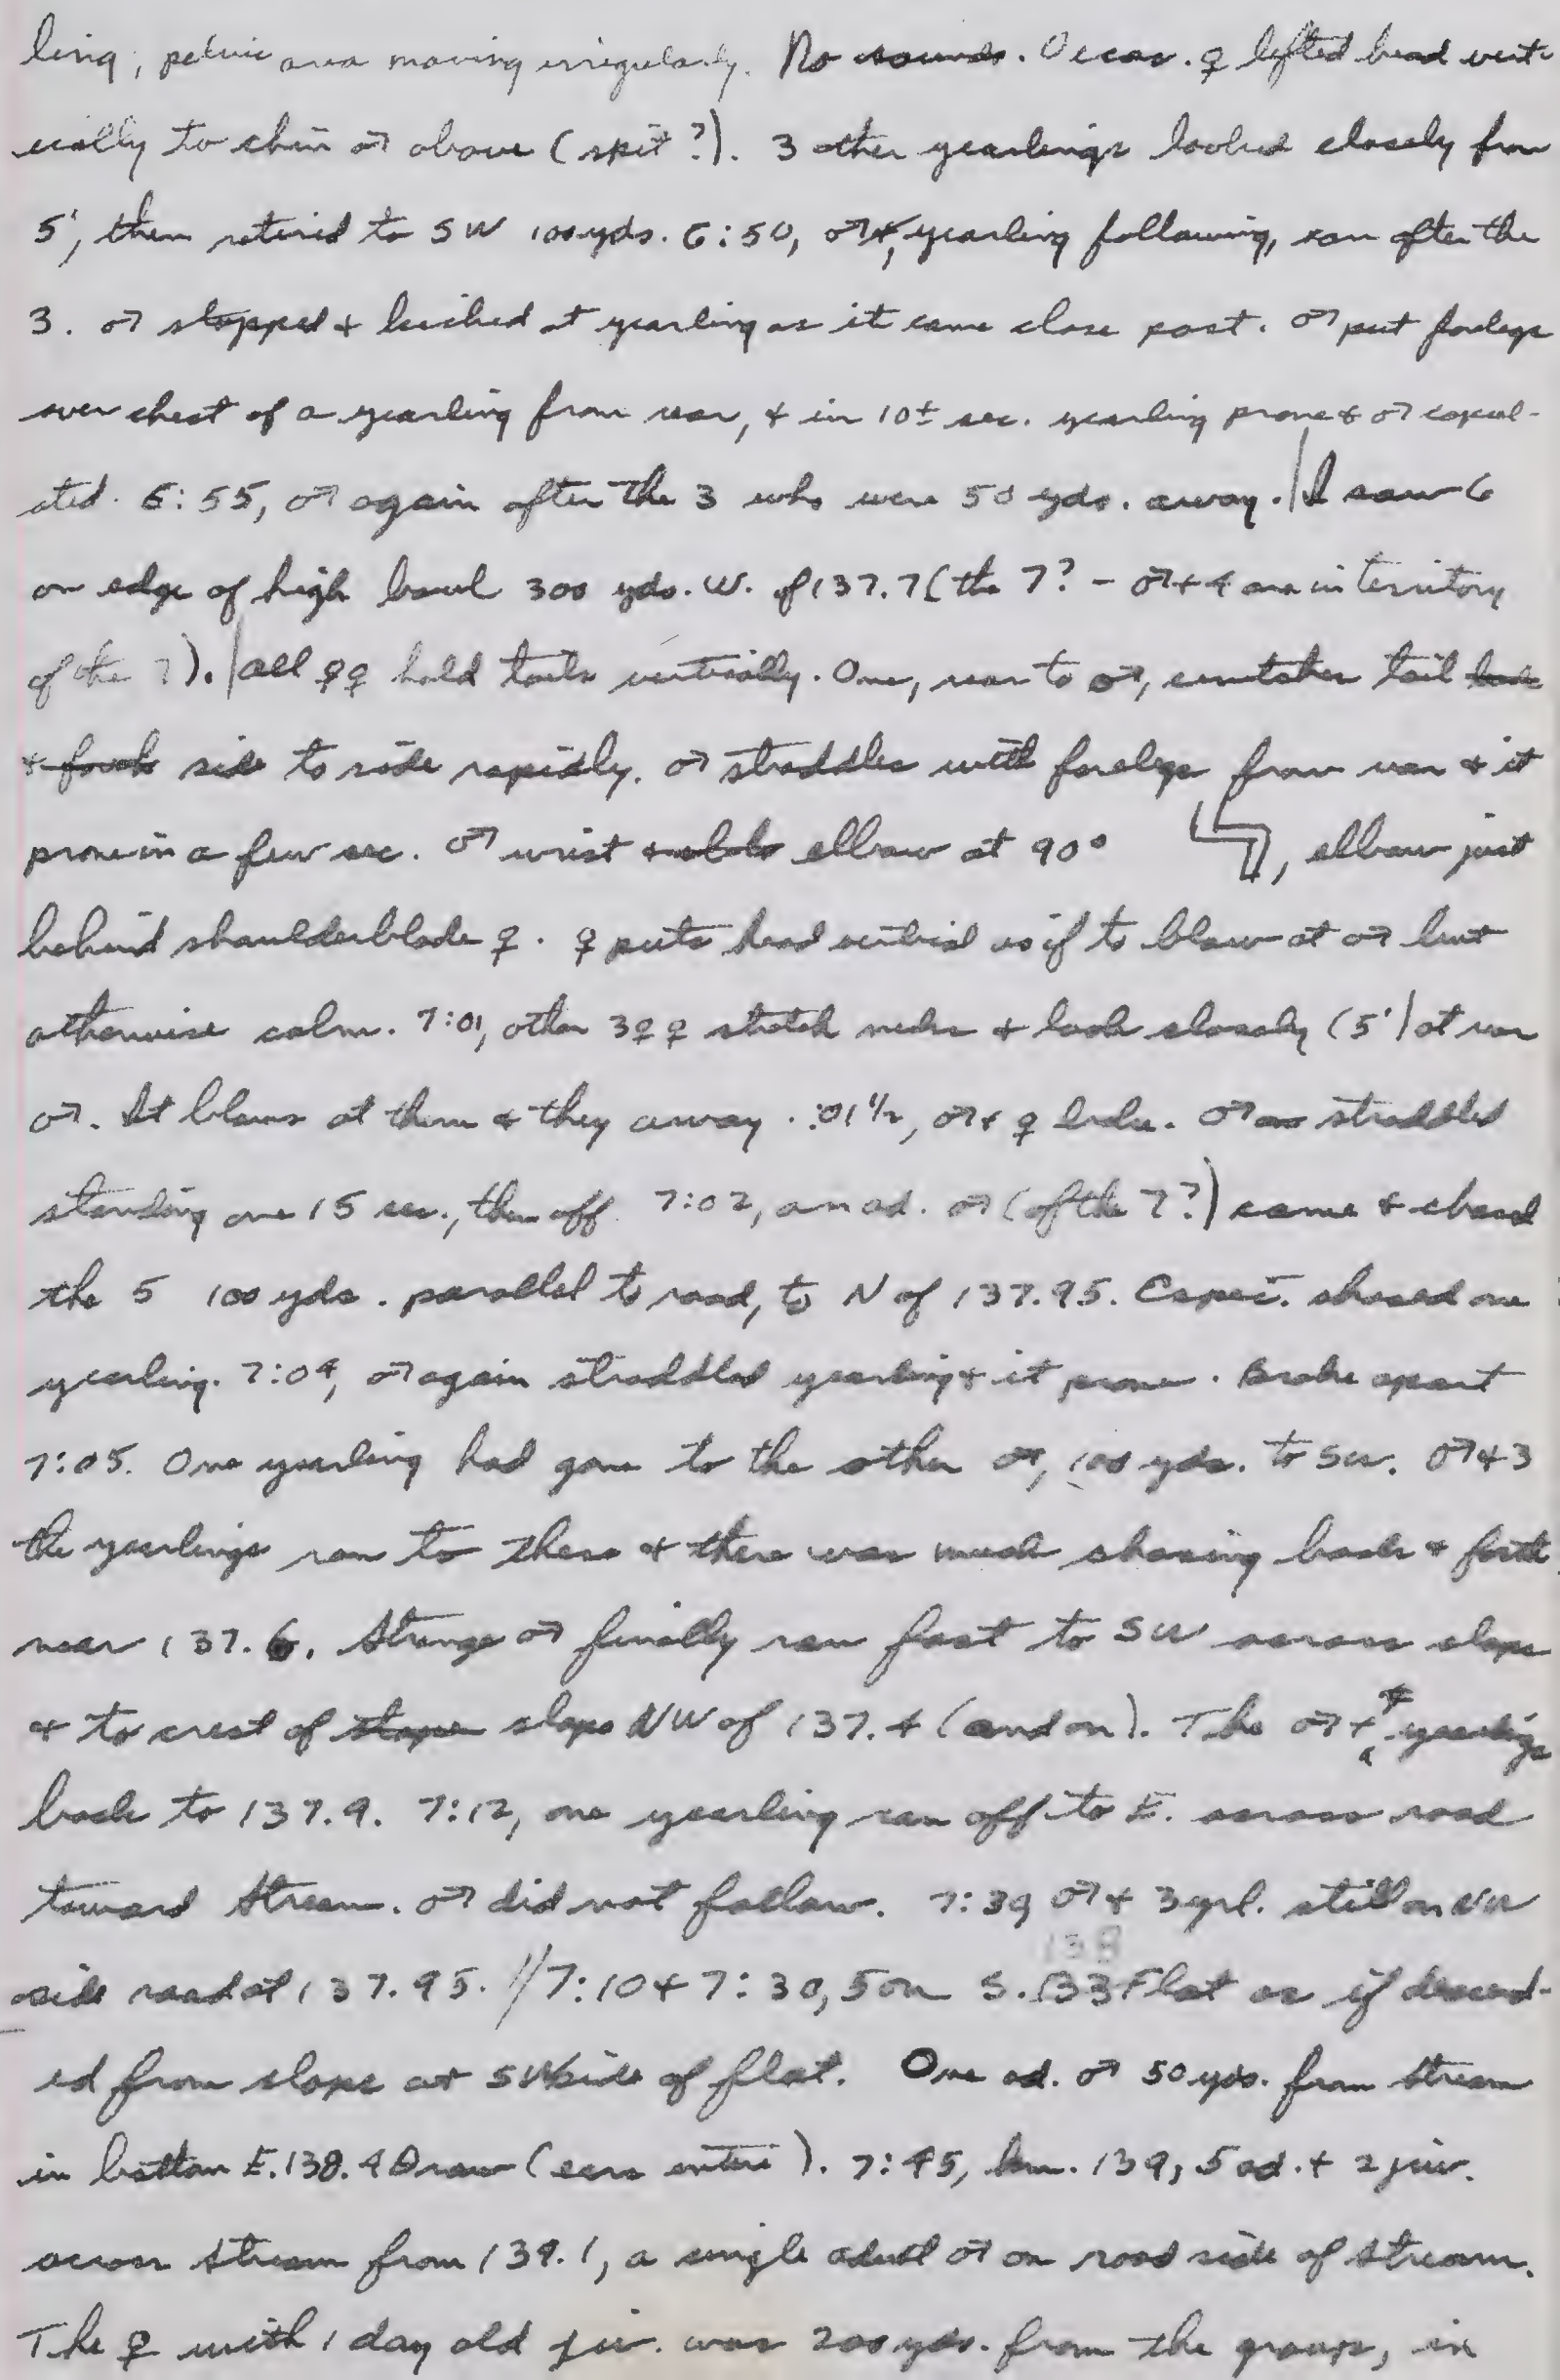 ling, pelvic area moving irregularly. No sounds. Occas. ♀ lifted head vert-
ically to chin ♂ above (spit?). 3 other yearlings looked closely from
5', then retired to SW 100 yds. 6:50, ♂ +, yearling following, ran after the
3. ♂ stopped + kicked at yearling as it came close past. ♂ put forelegs
over chest of a yearling from rear, + in 10± sec. yearling prone + ♂ copul-
ated. 6:55, ♂ again after the 3 who were 50 yds. away. | I saw 6
on edge of high bowl 300 yds. W. of 137.7 (the 7? - ♂ + 4 are in territory
of the 7). | All ♀♀ hold tails vertically. One, rear to ♂, switches tail back
+ forth side to side rapidly. ♂ straddles with forelegs from rear + it
prone in a few sec. ♂ wrist elbow at 90° , elbow just
behind shoulderblade ♀. ♀ puts head vertical as if to blow at ♂ but
otherwise calm. 7:01, other 3 ♀♀ stretch necks + look closely (5') at rear
♂. It blows at them + they away. :01 1/2, ♂ + ♀ broke. ♂ straddled
standing one 15 sec., then off. 7:02, an ad. ♂ (of the 7?) came + chased
the 5 100 yds. parallel to road, to N of 137.95. Espec. chased one
yearling. 7:04, ♂ again straddled yearling + it prone. Broke apart
7:05. One yearling had gone to the other ♂, 100 yds. to SW. ♂ + 3
the yearlings ran to these + there was much chasing back + forth
near 137.6. Strange ♂ finally ran fast to SW across slope
+ to crest of slope slope NW of 137.4 (and on). The ♂ + 4 yearlings
back to 137.9. 7:12, one yearling ran off to E. across road
toward stream. ♂ did not follow. 7:39 ♂ + 3 yrl. still on NW
side road at 137.95. // 7:10 + 7:30, 5 on S. 138 Flat as if descend-
ed from slope at SW side of flat. One ad. ♂ 50 yds. from stream
in bottom E. 138.4 Draw (ears entire). 7:45, km. 139, 5 ad. + 2 juv.
across stream from 139.1, a single adult ♂ on road side of stream.
The ♀ with 1 day old juv. was 200 yds. from the group, in